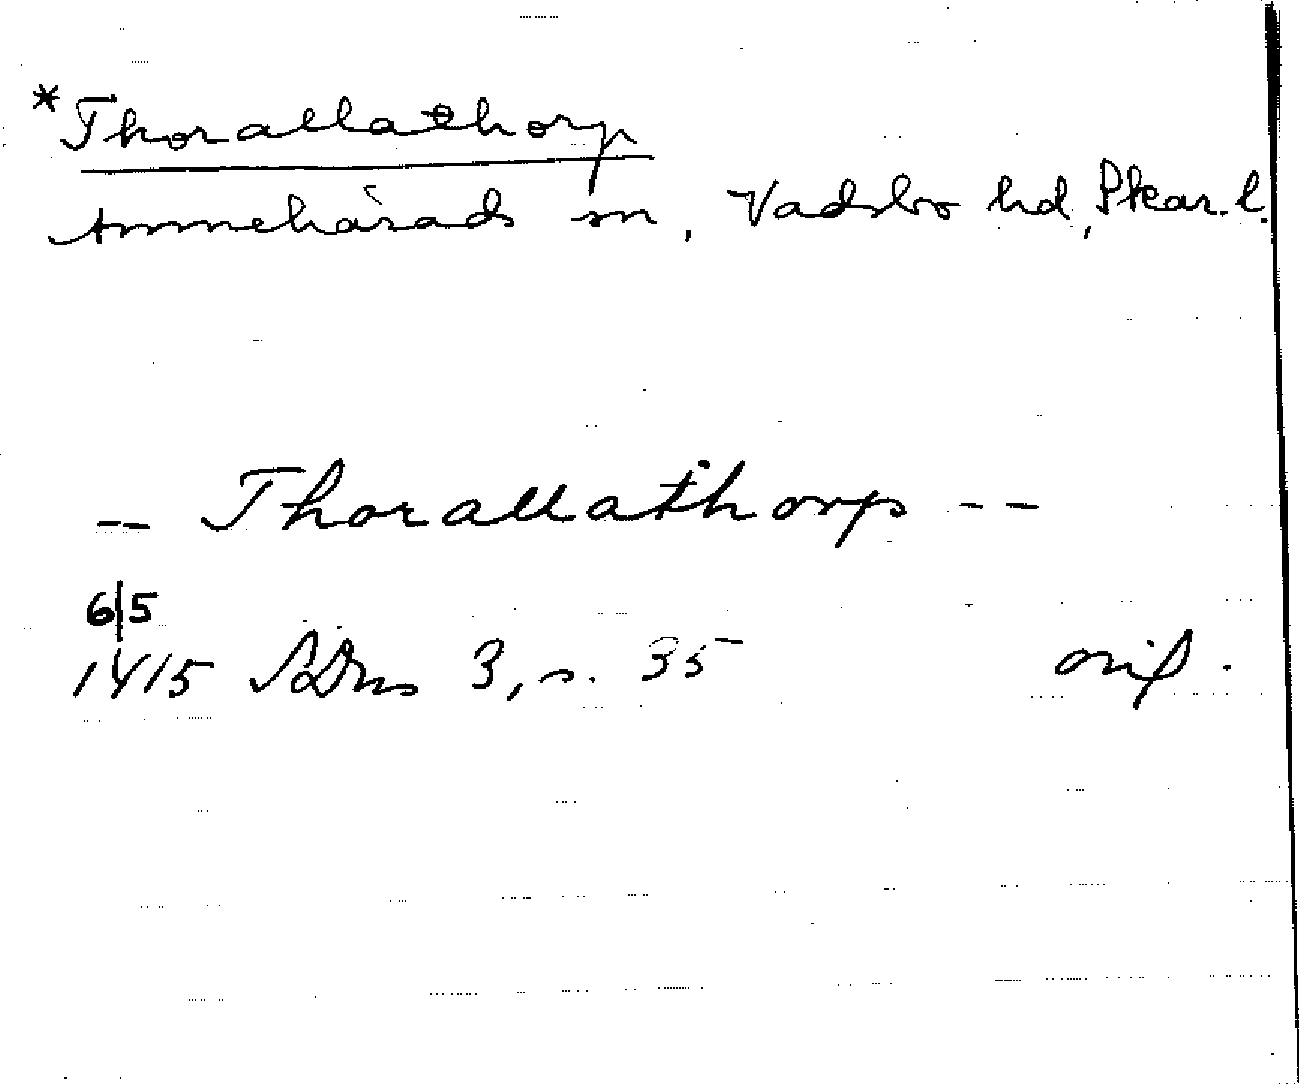 *Thorallathorp
Amnehärads sn, Vadsbo hd, Skar. l.
-- Thorallathorp --
6/5
1415 SDns 3, s. 35 orig.